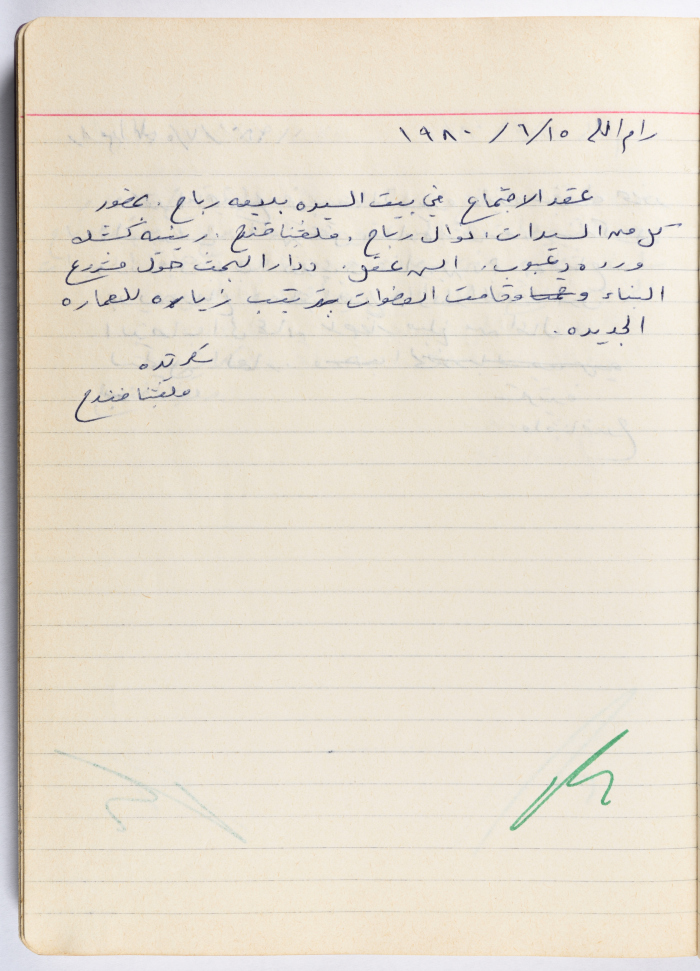 رام الله ١٥/ ٦/ ١٩٨٠
عقد الاجتماع في بيت السيده بديعه رباح. بحضور
كل من السيدات، نوال رباح، ملفينا ضندح. رينيه كشك
ورده دغبوب. السن عقل. ودار البحث حول مشروع
البناء وقامت العضوات بترتيب زياره للعماره
الجديده.
سكرتيره
ملفينا ضندح